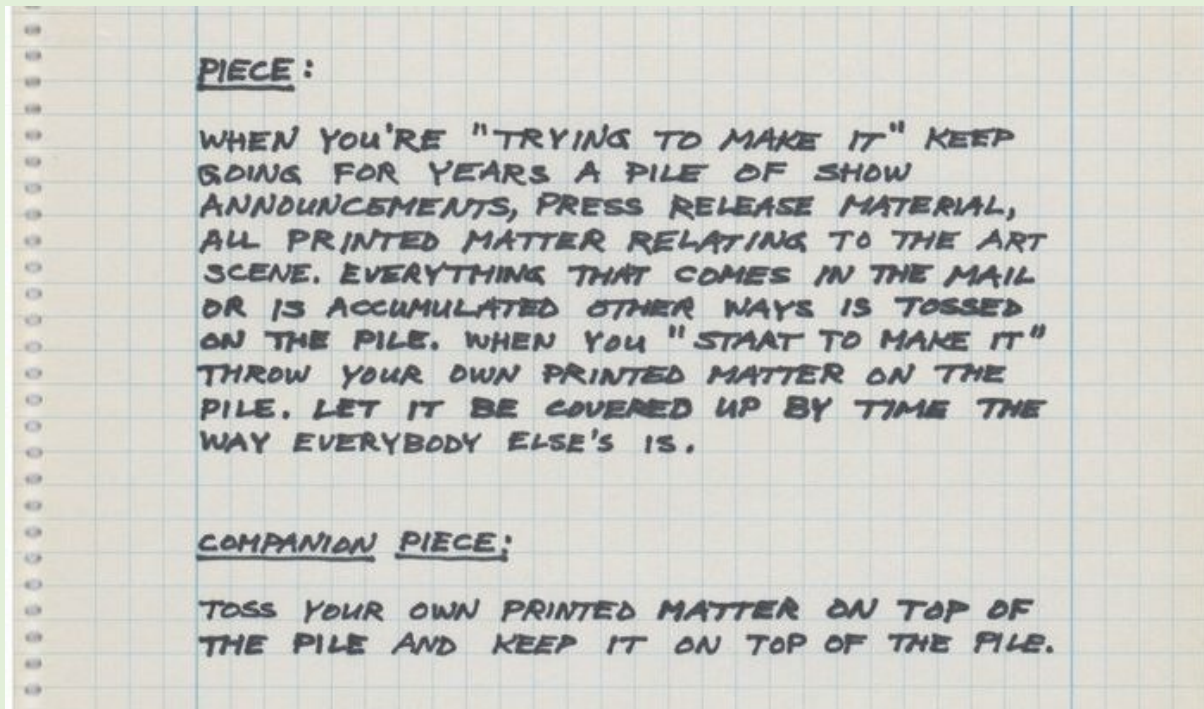 PIECE:
WHEN YOU'RE "TRYING TO MAKE IT" KEEP
GOING FOR YEARS A PILE OF SHOW
ANNOUNCEMENTS, PRESS RELEASE MATERIAL,
ALL PRINTED MATTER RELATING TO THE ART
SCENE. EVERYTHING THAT COMES IN THE MAIL
OR IS ACCUMULATED OTHER WAYS IS TOSSED
ON THE PILE. WHEN YOU "START TO MAKE IT"
THROW YOUR OWN PRINTED MATTER ON THE
PILE. LET IT BE COVERED UP BY TIME THE
WAY EVERYBODY ELSE'S IS.
COMPANION PIECE:
TOSS YOUR OWN PRINTED MATTER ON TOP OF
THE PILE AND KEEP IT ON TOP OF THE PILE.